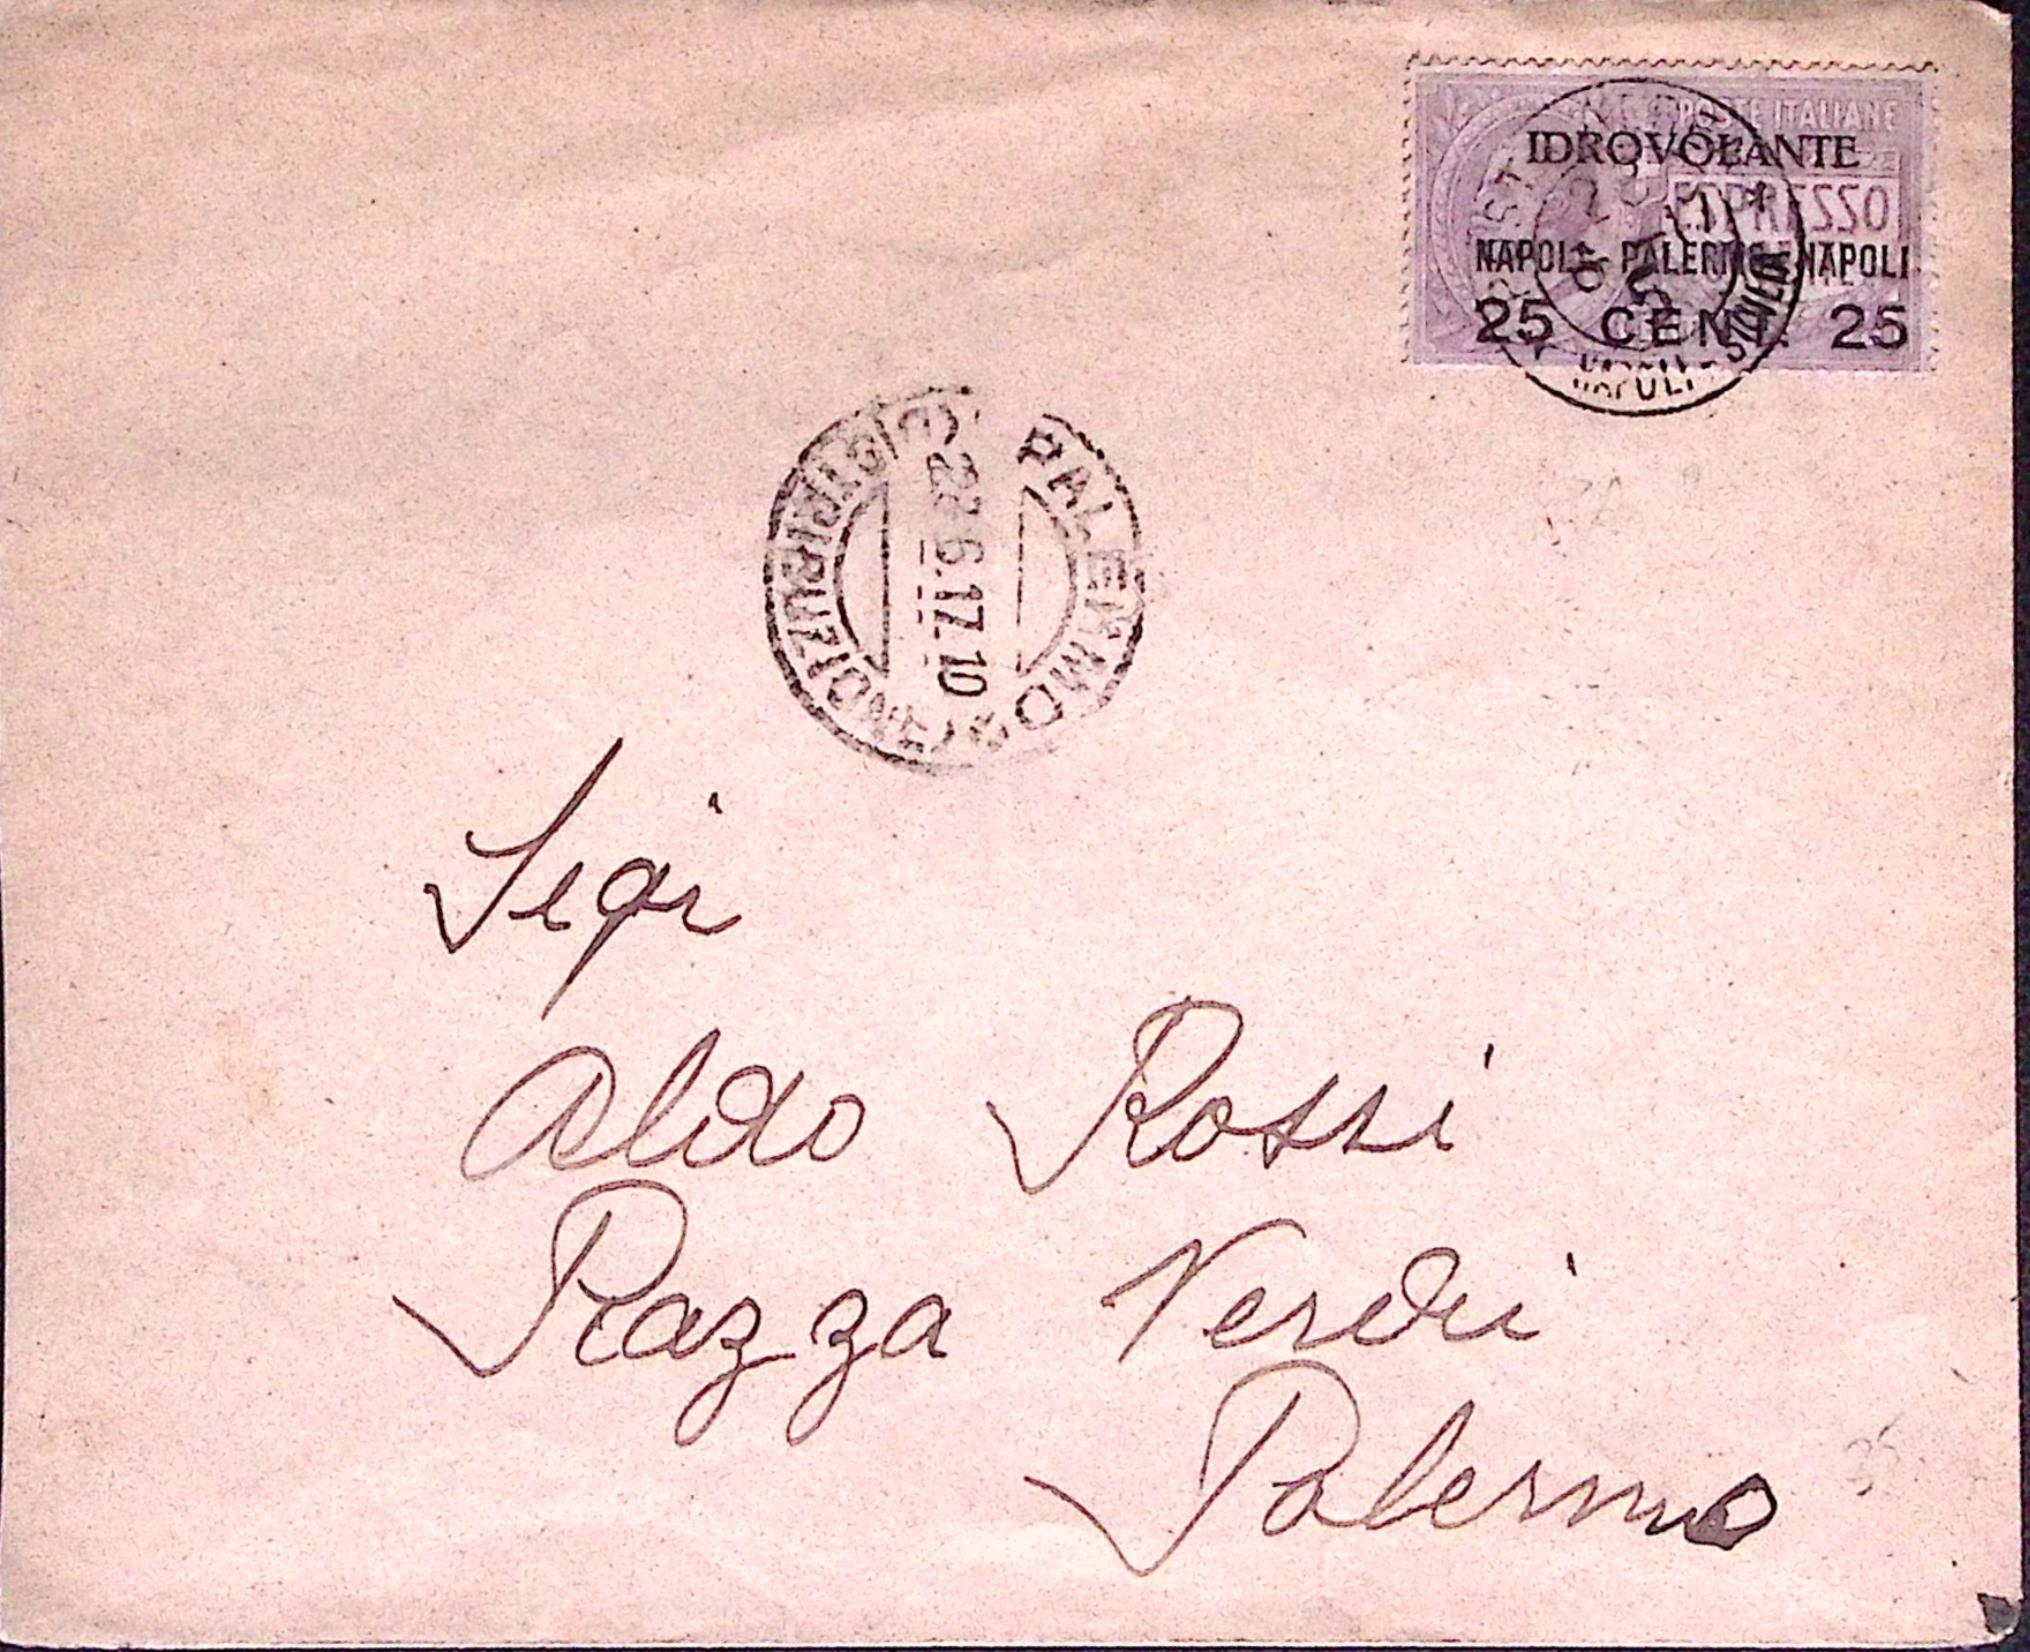 POSTE ITALIANE
IDROVOLANTE
ESPRESSO
NAPOLI - PALERMO - NAPOLI
25 CENT. 25
PALERMO
22 6.17.10
DISTRIBUZIONE
Segi
Aldo Rossi
Piazza Verdi
Palermo
35